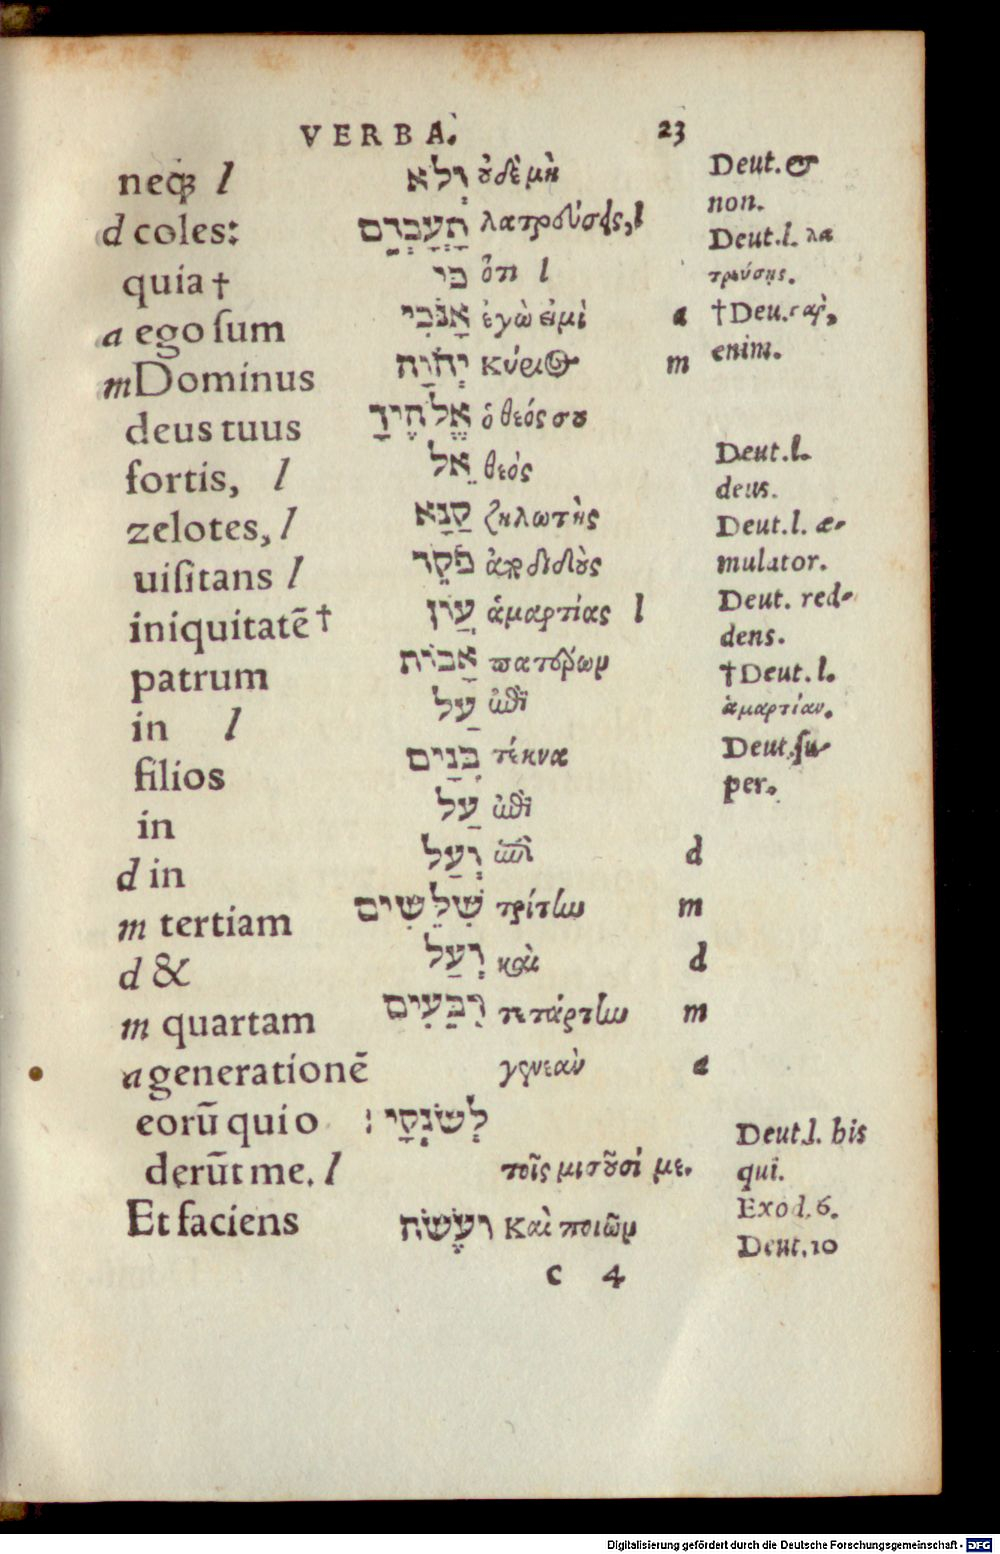 VERBA. 23
neq; l וְלֹא ουδὲ μὴ Deut. &
non.
d coles: תָעָבְדֵם λατρεύσῃς, l Deut. l. λα
τρεύσῃς.
quia † כִּי ὅτι l
a ego sum אָנֹכִי ἐγώ εἰμὶ a † Deu. γάρ,
enim.
m Dominus יְהוָֹה κύριος m
deus tuus אֱלֹהֶיךָ ὁ θεός σου
fortis, l אֵל θεὸς Deut. l.
deus.
zelotes, l קַנָּא ζηλωτὴς Deut. l. æ-
mulator.
uisitans l פֹּקֵד ἀποδιδοὺς Deut. red-
dens.
iniquitatē † עֲוֹן ἁμαρτίας l
patrum אָבוֹת πατέρων † Deut. l.
ἁμαρτίαν.
in l עַל ἐπὶ
filios בָּנִים τέκνα Deut. su-
per.
in עַל ἐπὶ
d in וְעַל ἐπὶ d
m tertiam שִׁלֵּשִׁים τρίτην m
d & וְעַל καὶ d
m quartam רִבֵּעִים τετάρτην m
a generationē γενεὰν a
eorū qui o לְשֹׂנְאָי : Deut. l. bis
derūt me. l τοῖς μισοῦσί με. qui.
Et faciens וְעֹשֶׂה καὶ ποιῶν Exod. 6.
Deut. 10
c 4
Digitalisierung gefördert durch die Deutsche Forschungsgemeinschaft - DFG